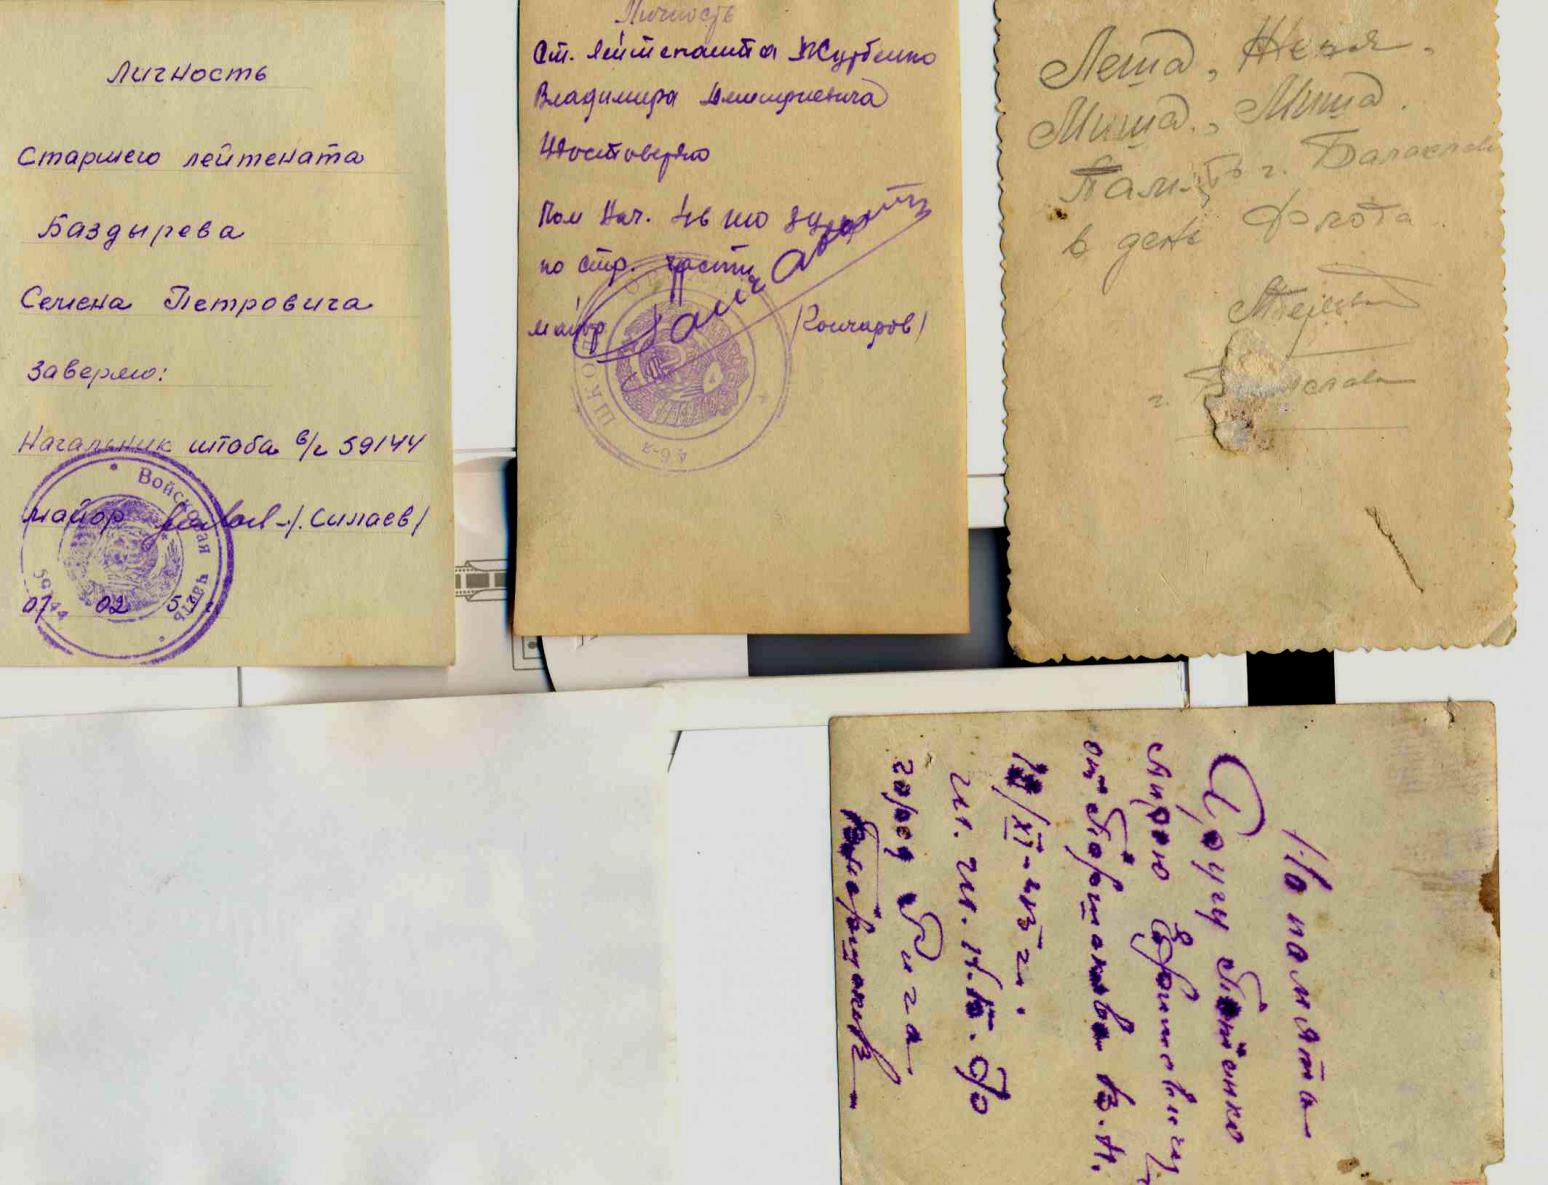 Личность
Старшего лейтената
Баздырева
Семена Петровича
Заверяю:
Начальник штоба в/ч 59144
майор /Силаев/
Войсковая часть 59144
07 02 5
Личность
Ст. лейтенанта Журбенко
Владимира Дмитриевича
Удостоверяю
Пом Нач.
по стр. части
майор /Кончаров/
46-я ШКО
Леша, Женя.
Миша, Миша.
Память г. Балаклава
в день Флота
г. Балаклава
На памятъ
Другу
Ефимовичу
от Паршакова В.Н.
/XI-45 г.
город Рига
Паршаков